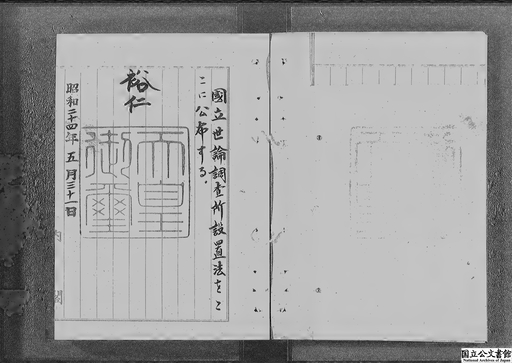 國立世論調査所設置法をこ
こに公布する。
裕仁
天皇
御璽
昭和二十四年五月三十一日
内閣
国立公文書館
National Archives of Japan